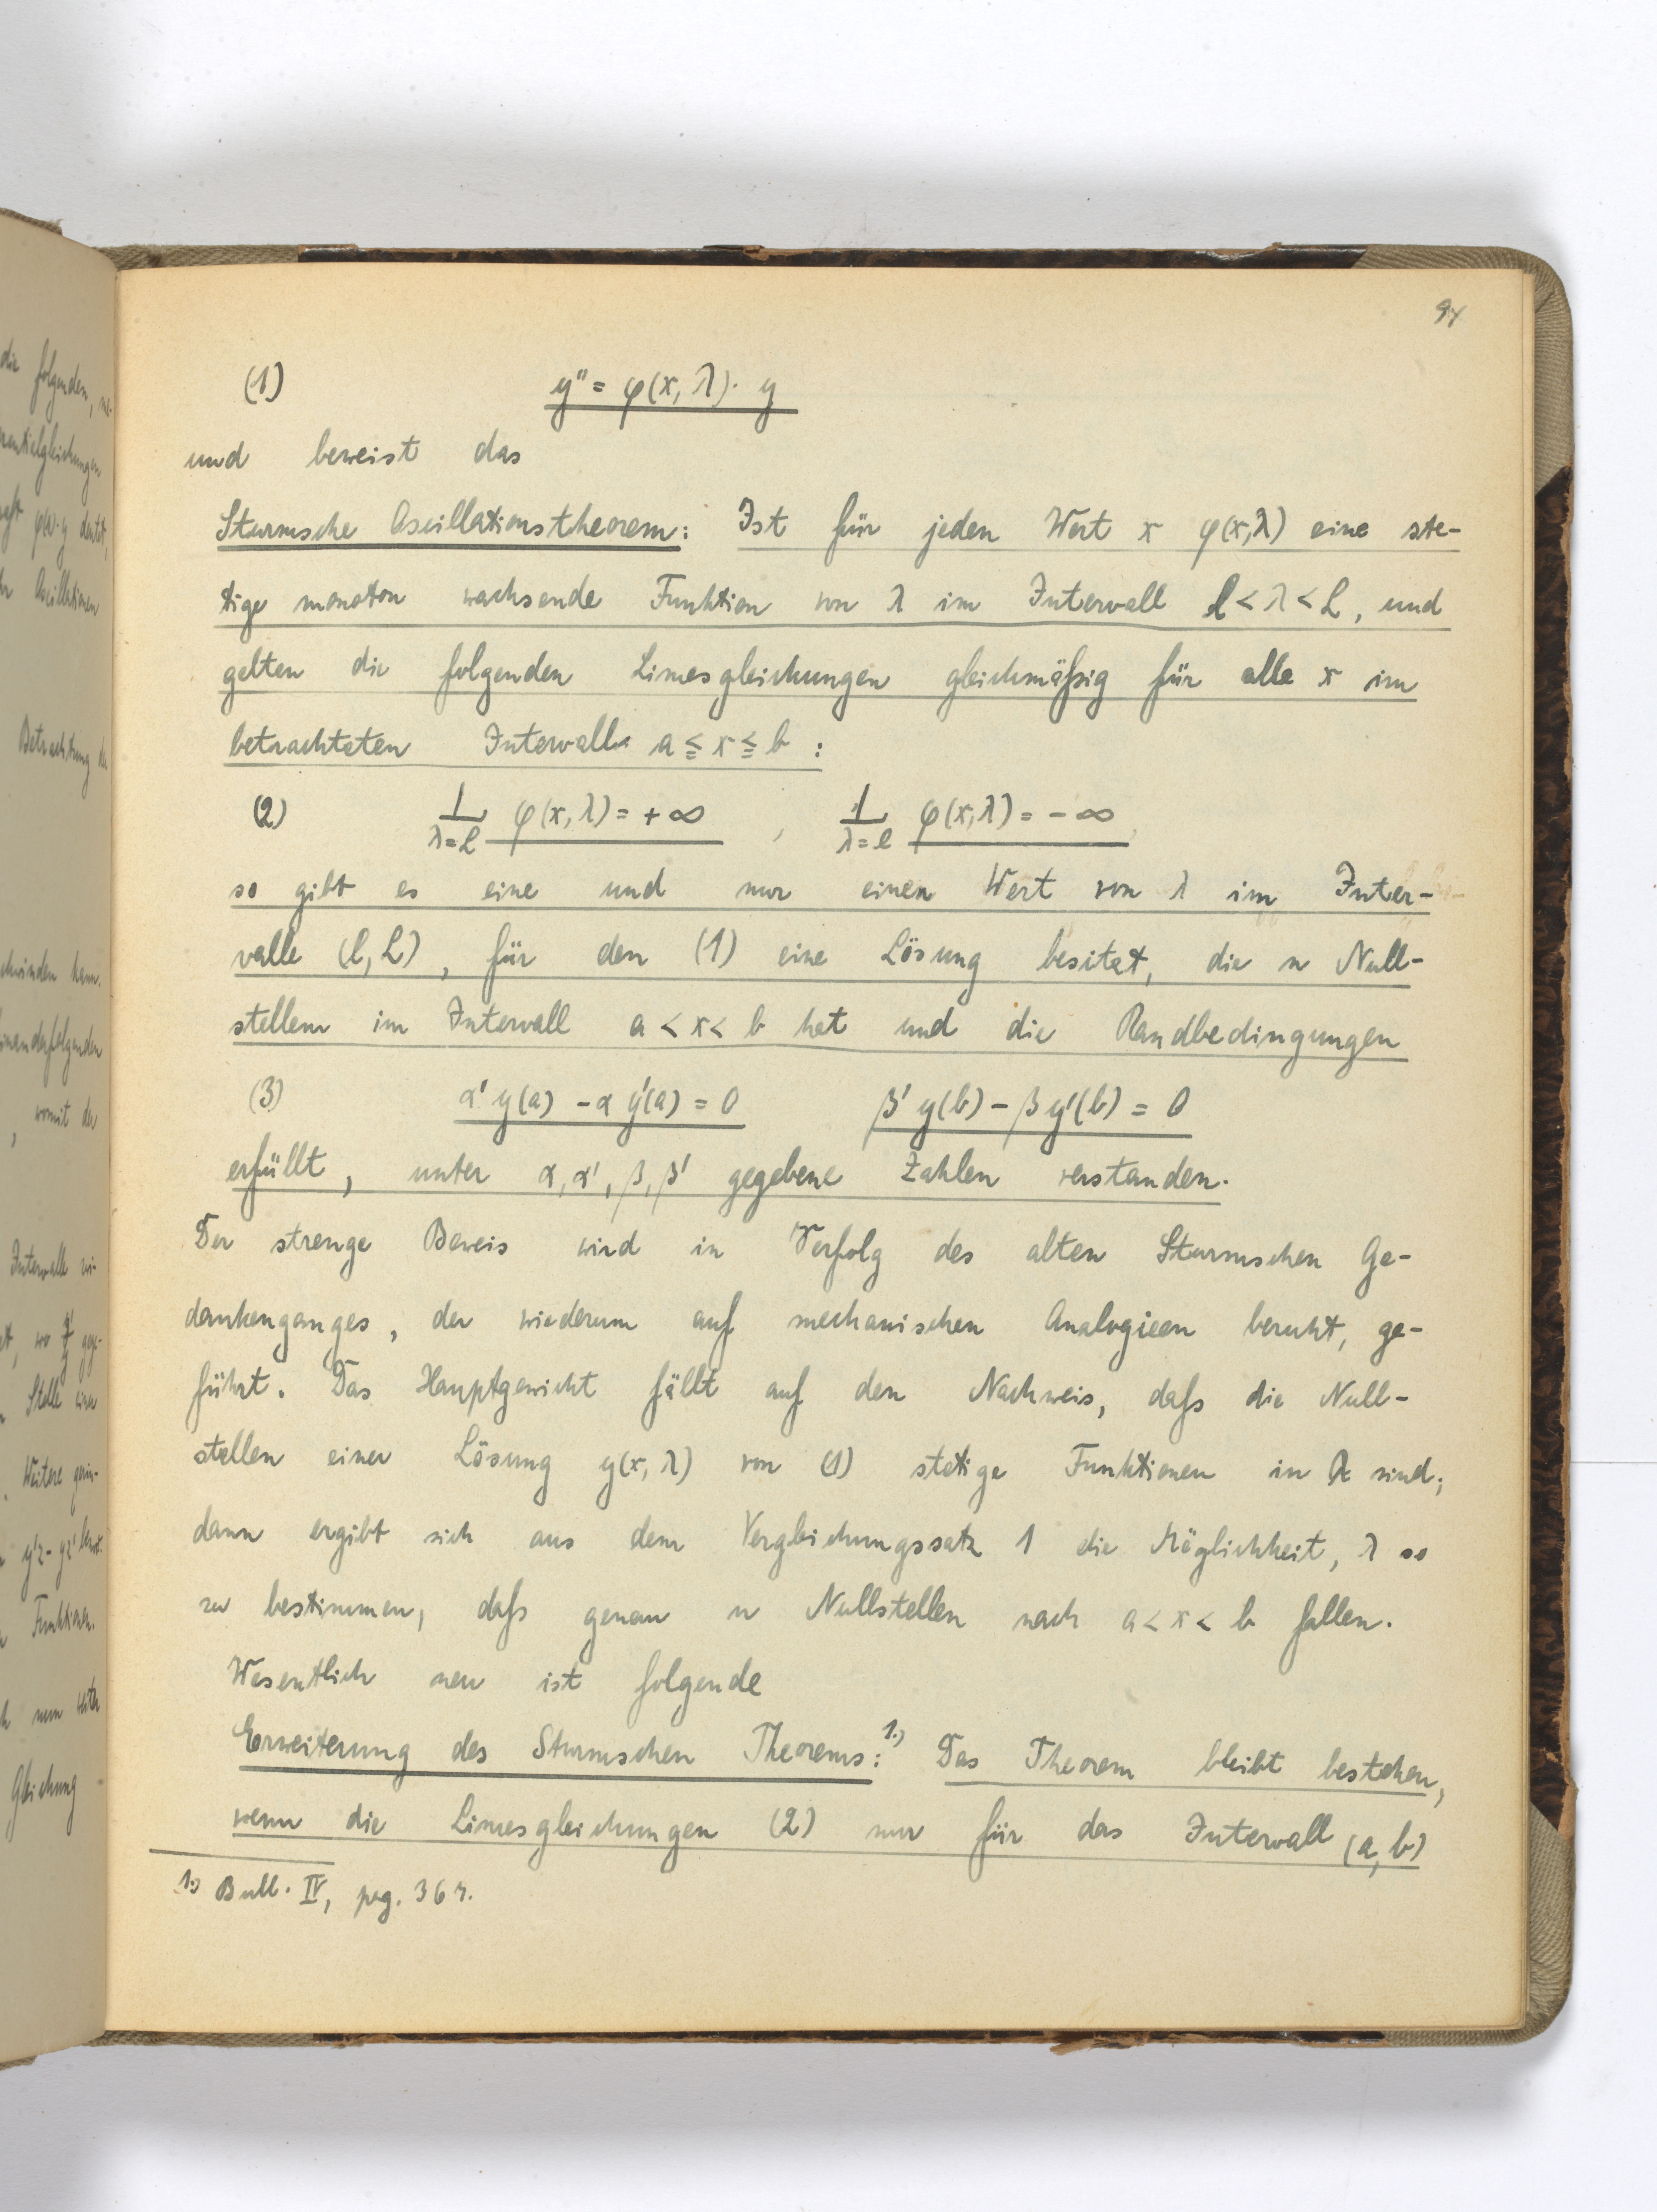 94
(1) y'' = φ(x, λ)· y
und beweist das
Sturmsche Oscillationstheorem: Ist für jeden Wert x φ(x,λ) eine ste-
tige monoton wachsende Funktion von λ im Intervall l < λ < L, und
gelten die folgenden Limesgleichungen gleichmäßig für alle x im
betrachteten Intervall a ≦ x ≦ b :
(2) L λ=L φ(x, λ) = + ∞ , L λ=l φ(x, λ) = - ∞,
so gibt es eine und nur einen Wert von λ im Inter-
valle (l, L), für den (1) eine Lösung besitzt, die n Null-
stellen im Intervall a < x < b hat und die Randbedingungen
(3) α' y(a) - α y'(a) = 0 β' y(b) - β y'(b) = 0
erfüllt, unter α, α', β, β' gegebene Zahlen verstanden.
Der strenge Beweis wird in Verfolg des alten Sturmschen Ge-
dankenganges, der wiederum auf mechanischen Analogieen beruht, ge-
führt. Das Hauptgewicht fällt auf den Nachweis, daß die Null-
stellen einer Lösung y(x, λ) von (1) stetige Funktionen in λ sind;
dann ergibt sich aus dem Vergleichungssatz 1 die Möglichkeit, λ so
zu bestimmen, daß genau n Nullstellen nach a < x < b fallen.
Wesentlich neu ist folgende
Erweiterung des Sturmschen Theorems: 1.) Das Theorem bleibt bestehen,
wenn die Limesgleichungen (2) nur für das Intervall (a, b)
1.) Bull. IV, pag. 364.
die folgenden,
φ(x)·y
Oscillationen
Betrachtung der
kann.
, womit der
Intervalle
Stelle
Weitere
y'z - yz'
Funktionen.
nun weiter
Gleichung